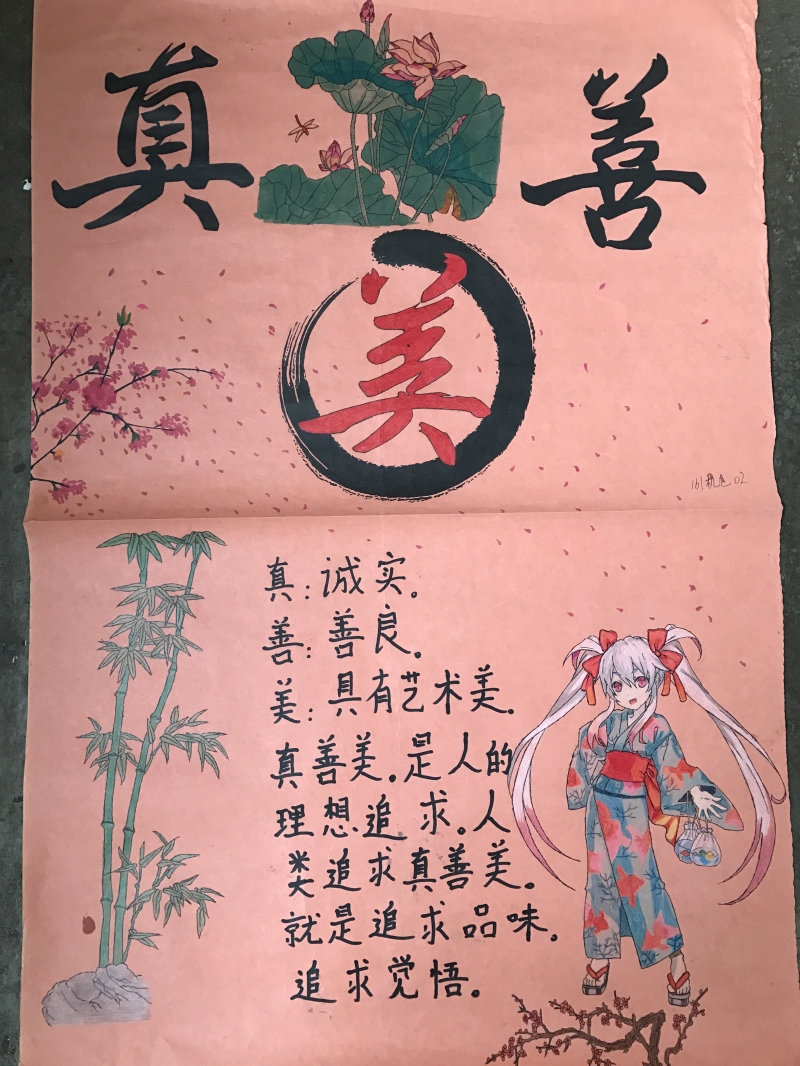 真
善
美
真：诚实。
善：善良。
美：具有艺术美.
真善美。是人的
理想追求。人
类追求真善美。
就是追求品味。
追求觉悟。